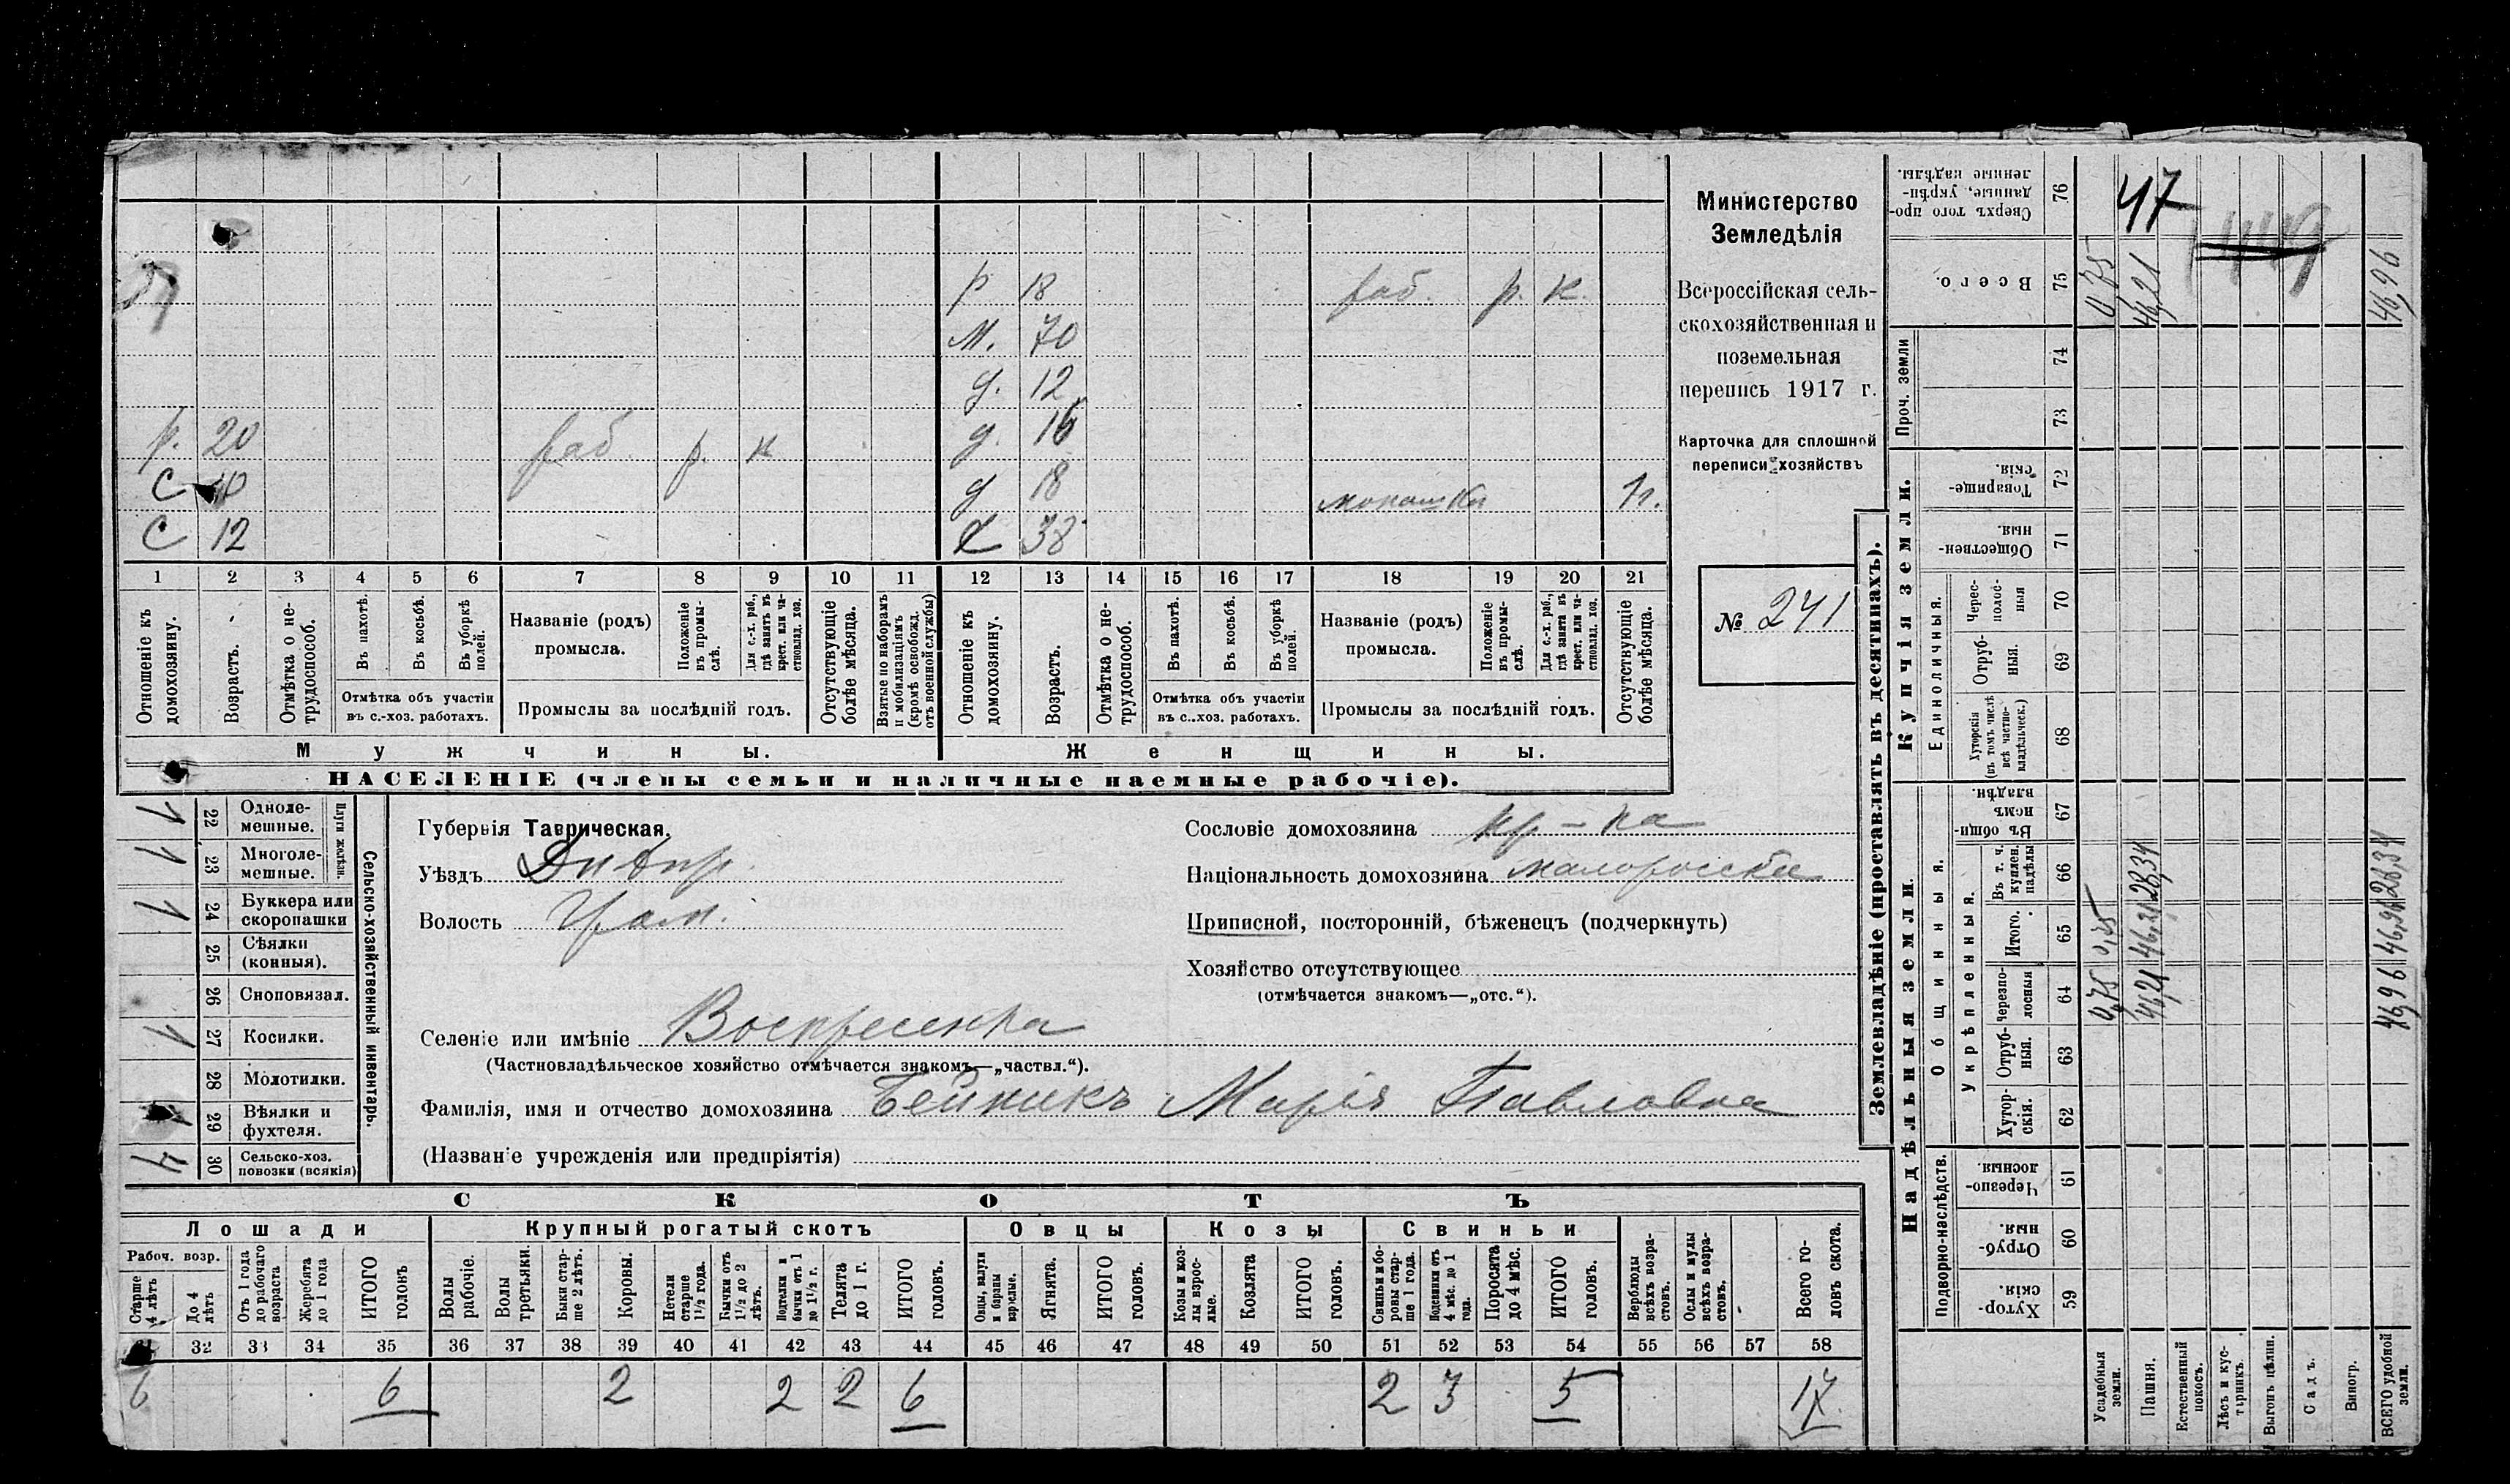 Министерство
Земледѣлія
Всероссійская сель-
скохозяйственная и
поземельная
перепись 1917 г.
Карточка для сплошной
переписи хозяйствъ
№ 241
р 18 раб. р. к.
м. 70
д. 12
д. 16
р. 20 раб. р. к
д 18 монашка 1 г.
с 12
38
1 2 3 4 5 6 7 8 9 10 11 12 13 14 15 16 17 18 19 20 21
Отношеніе къ домохозяину.
Возрастъ.
Отмѣтка о не-трудоспособ.
Въ пахотѣ.
Въ косьбѣ.
Въ уборкѣ полей.
Отмѣтка объ участіи
въ с.-хоз. работахъ.
Названіе (родъ)
промысла.
Положеніе въ промы-слѣ.
Для с.-х. раб., гдѣ занятъ въ крест. или ча-стновлад. хоз.
Промыслы за послѣдній годъ.
Отсутствующіе болѣе мѣсяца.
Взятые по наборамъ и мобилизаціямъ (кромѣ освобожд. отъ военной службы)
Отношеніе къ домохозяину.
Возрастъ.
Отмѣтка о не-трудоспособ.
Въ пахотѣ.
Въ косьбѣ.
Въ уборкѣ полей.
Отмѣтка объ участіи
въ с..хоз. работахъ.
Названіе (родъ)
промысла.
Положеніе въ промы-слѣ.
Для с.-х. раб., гдѣ занята въ крест. или ча-стновлад. хоз.
Промыслы за послѣдній годъ.
Отсутствующіе болѣе мѣсяца.
Мужчины.
Женщины.
НАСЕЛЕНІЕ (члены семьи и наличные наемные рабочіе).
Сельско-хозяйственный инвентарь.
Плуги желѣзн.
1 22 Одноле-мешные.
1 23 Многоле-мешные.
1 24 Буккера или скоропашки
25 Сѣялки (конныя).
26 Сноповязал.
1 27 Косилки.
28 Молотилки.
29 Вѣялки и фухтеля.
4 30 Сельско-хоз. повозки (всякія)
Губернія Таврическая.
Уѣздъ Днѣпр.
Волость
Селеніе или имѣніе Воскресенка
(Частновладѣльческое хозяйство отмѣчается знакомъ—„частвл.“).
Фамилія, имя и отчество домохозяина Бейникъ Марія Павловна
(Названіе учрежденія или предпріятія)
Сословіе домохозяина кр-ка
Національность домохозяина малоросска
Приписной, посторонній, бѣженецъ (подчеркнуть)
Хозяйство отсутствующее
(отмѣчается знакомъ—„отс.“).
СКОТЪ
Лошади Крупный рогатый скотъ Овцы Козы Свиньи
Рабоч. возр.
Старше 4 лѣтъ
До 4 лѣтъ
Отъ 1 года до рабочаго возраста
Жеребята до 1 года
ИТОГО головъ
Волы рабочіе.
Волы третьяки.
Быки стар-ше 2 лѣтъ.
Коровы.
Нетели старше 1½ года.
Бычки отъ 1½ до 2 лѣтъ.
Подтелки и бычки отъ 1 до 1½ г.
Телята до 1 г.
ИТОГО головъ.
Овцы, валухи и бараны взрослые.
Ягнята.
ИТОГО головъ.
Козы и коз-лы взрос-лые.
Козлята
ИТОГО головъ.
Свиньи и бо-ровы стар-ше 1 года.
Подсвинки отъ 4 мѣс. до 1 года.
Поросята до 4 мѣс.
ИТОГО головъ.
Верблюды всѣхъ возра-стовъ.
Ослы и мулы всѣхъ возра-стовъ.
Всего го-ловъ скота.
32 33 34 35 36 37 38 39 40 41 42 43 44 45 46 47 48 49 50 51 52 53 54 55 56 57 58
6 6 2 2 2 6 2 3 5 17
Землевладѣніе (проставлять въ десятинахъ).
Надѣльныя земли.
Купчія земли.
Проч. земли
Подворно-наслѣдств.
Общинныя.
Укрѣпленныя.
Единоличныя.
Сверхъ того про-данные, укрѣп-ленные надѣлы. 76 47
Всего. 75 0,75 46,21 46,96
74
73
Товарище-скія. 72
Обществен-ныя. 71
Черес-полос-ныя 70
Отруб-ныя. 69
Хуторскія (въ томъ числѣ всѣ частно-владѣльческ.) 68
Въ общин-номъ владѣн. 67
Въ т. ч. куплен. надѣлы 66 28,34 28,34
Итого. 65 0,75 46,21 46,96
Черезпо-лосныя 64 0,75 46,21 46,96
Отруб-ныя. 63
Хутор-скія. 62
Черезпо-лосныя 61
Отруб-ныя. 60
Хутор-скія 59
Усадебныя земли.
Пашня.
Естественный покосъ.
Лѣсъ и кус-тарникъ.
Выгонъ цѣлин.
Садъ.
Виногр.
ВСЕГО удобной земли.